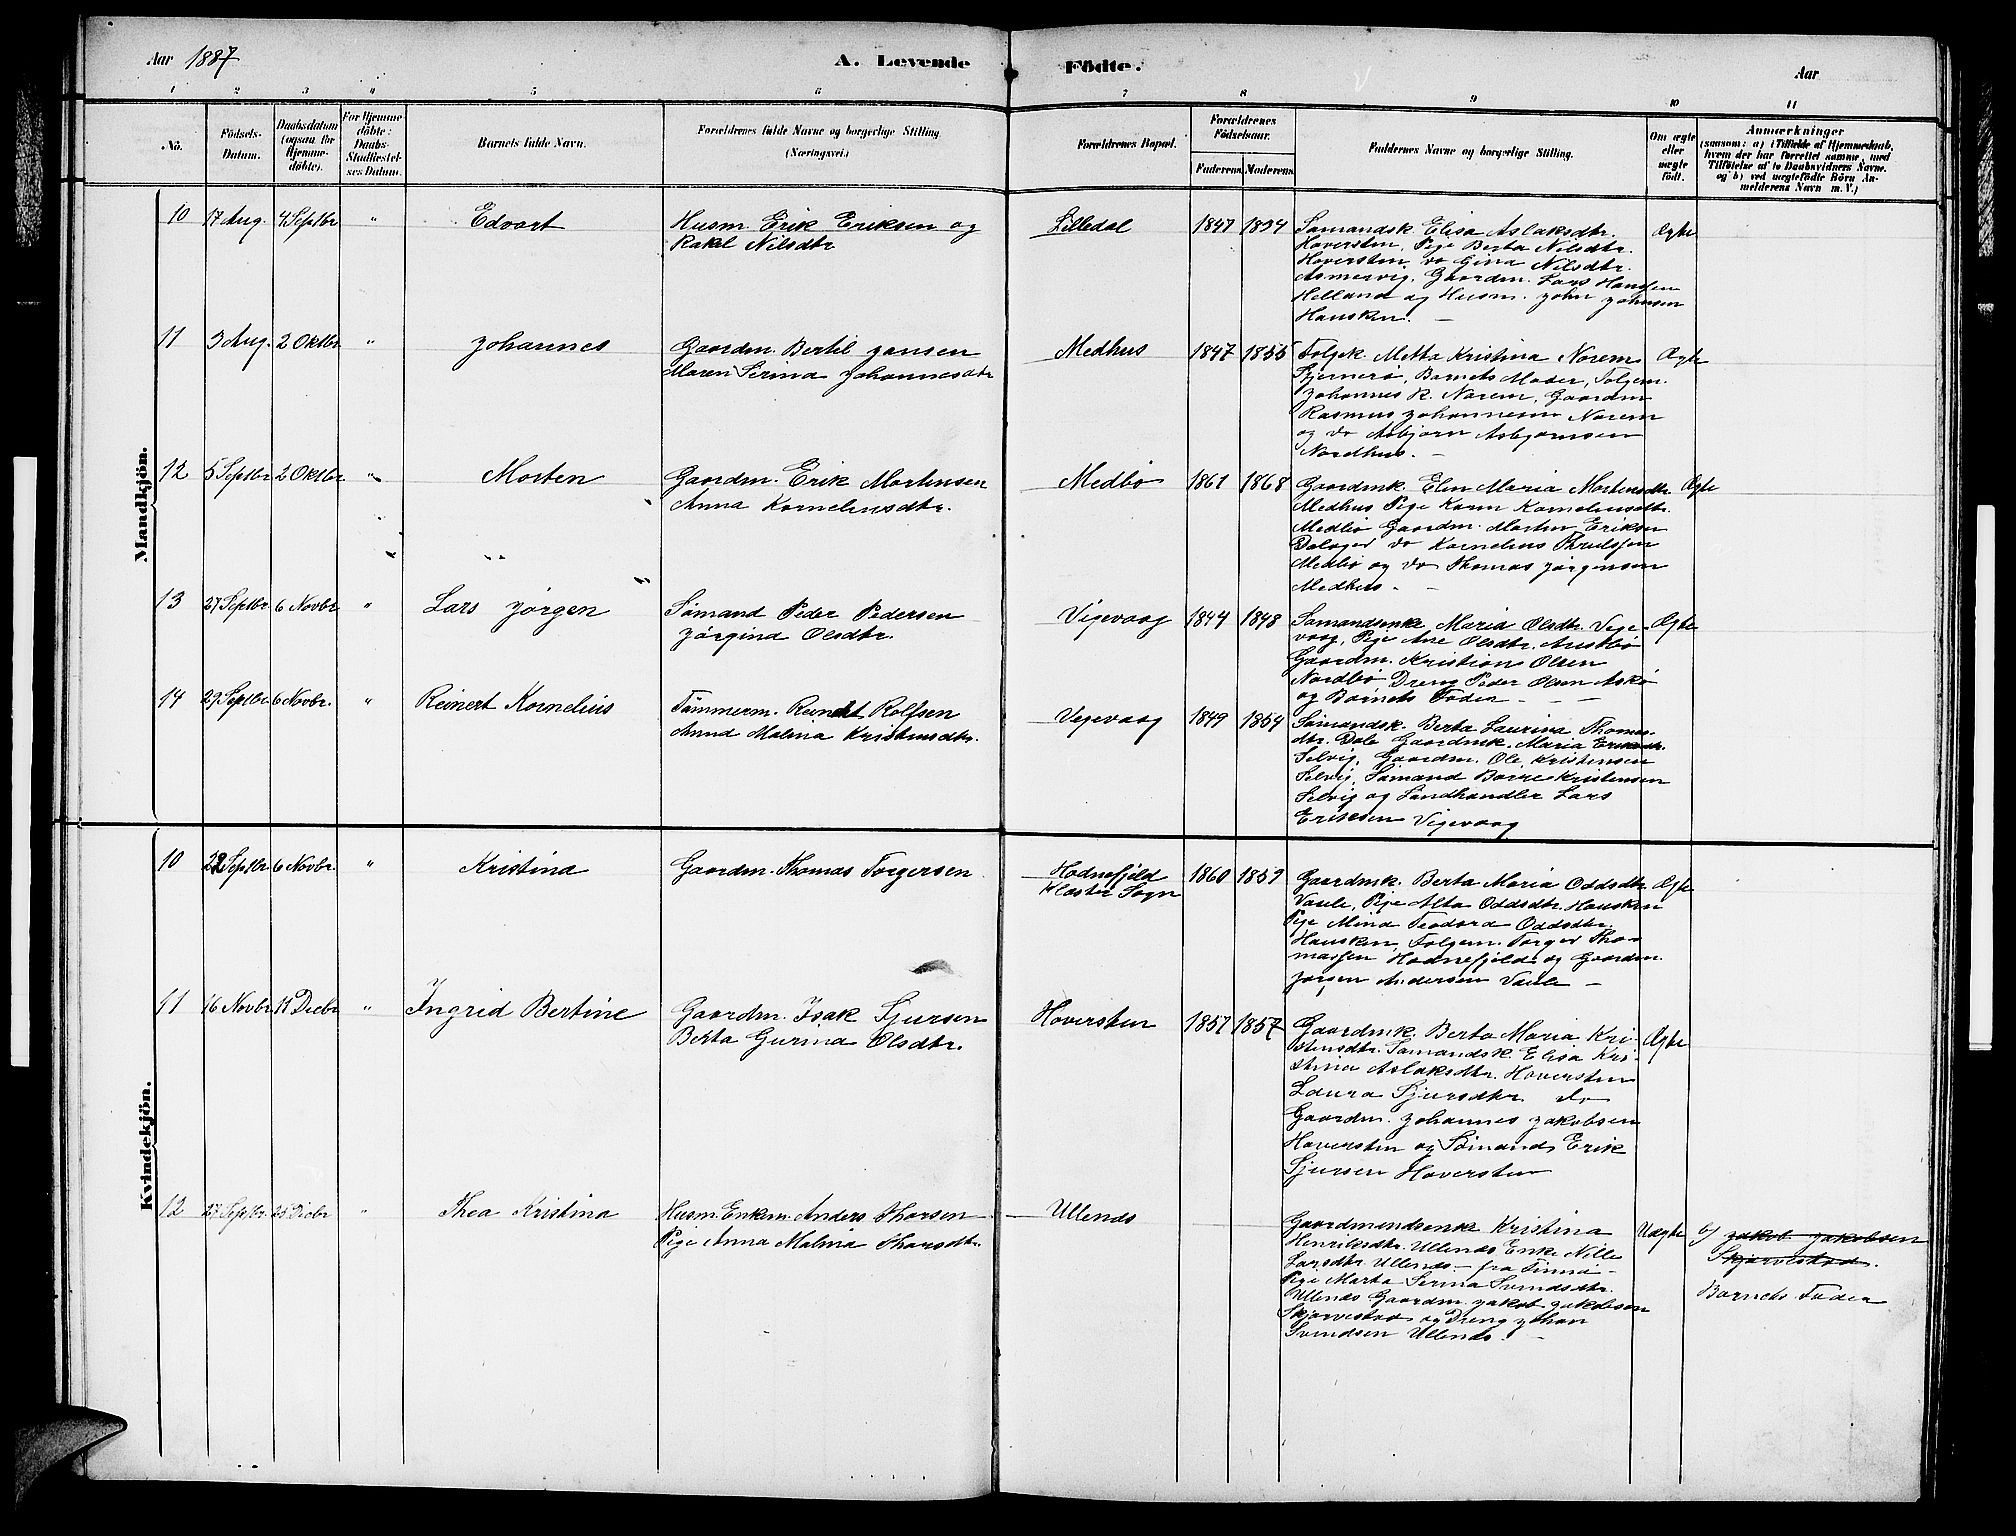 Aar 1887
A. Levende Födte.
Aar
1 2 3 4 5 6 7 8 9 10 11
No.
Födsels-Datum.
Daabsdatum (ogsaa for Hjemmedöbte).
For Hjemmedöbte: Daabs-Stadfæstelses Datum.
Barnets fulde Navn.
Forældrenes fulde Navne og borgerlige Stilling (Næringsvei.)
Forældrenes Bopæl.
Forældrenes Födselsaar.
Faderens. Moderens.
Faddernes Navne og borgerlige Stilling.
Om ægte eller uægte födt.
Anmærkninger
(saasom: a) i Tilfælde af Hjemmedaab, hvem der har forrettet samme, med Tilföielse af to Daabsvidners Navne. og b) ved uægtefödte Börn Anmelderens Navn m. V.)
Mandkjön.
10 17 Aug. 4 Septbr " Edvart
Husm. Erik Eriksen og
Rakel Nilsdtr
Lilledal 1847 1854
Sømandsk. Elisa Aslaksdtr.
Haversten, Pige Berta Nilsdtr.
Hoversten, do Gina Nilsdtr.
Asmervig. Gaardm. Lars Hansen
Helland og Husm. John Johnsen
Hausken. —
Ægte
11 3 Aug. 2 Oktbr. " Johannes
Gaardm. Bertil Jansen
Maren Serina Johannesdtr
Medhus 1847 1855
Folgek. Metta Kristina Norem
Sjernerø, Barnets Moder, Folgem.
Johannes K. Norem, Gaardm
Rasmus Johannesen Norem
og do Asbjørn Asbjørnsen
Nordhus. —
Ægte
12 5 Septbr 2 Oktbr. " Morten
Gaardm. Erik Mortensen
Anna Korneliusdtr.
Medbø 1861 1868
Gaardmk. Elen Maria Mortensdtr.
Medhus Pige Karen Korneliusdtr.
Medbø Gaardm. Morten Eriksen
Dalager do Kornelius Thrulssen
Medbø og do Thomas Jørgensen
Medhus. —
Ægte
13 27 Septbr. 6 Novbr " Lars Jørgen
Sømand Peder Pedersen
Jørgina Olsdtr.
Vigevaag 1844 1848
Sømandsenke Maria Olsdtr. Vige-
vaag, Pige Ane Olsdtr.
Gaardm. Kristian Olsen
Nordbø Dreng Peder Olsen Askø
og Barnets Fader — —
Ægte
14 29 Septbr 6 Novbr. " Reinert Kornelius
Tømmerm. Reinert Rolfsen
Anna Malena Kristensdtr.
Vigevaag 1849 1854
Sømandsk. Berta Laurina Thomas-
dtr. Dale Gaardmk. Maria Eriksdtr.
Selvig, Gaardm. Ole Kristensen
Selvig, Sømand Børre Kristensen
Selvig og Landhandler Lars
Eriksen Vigevaag
Kvindekjön.
10 22 Septbr 6 Novbr. " Kristina
Gaardm. Thomas Torgersen
Hodnefjeld
Kloster Sogn
1860 1859
Gaardmk. Berta Maria Oddsdtr.
Vaule, Pige Alta Oddsdtr. Hausken
Pige Mina Teodora Oddsdtr.
Hausken, Folgem. Torger Tho-
massen Hodnefjeld og Gaardm.
Jørgen Andersen Vaule —
Ægte
11 16 Novbr. 11 Decbr " Ingrid Bertine
Gaardm. Isak Sjursen
Berta Gurina Olsdtr.
Hoversten 1857 1857
Gaardmk. Berta Maria Kri-
stensdtr. Sømandsk. Elisa Kri-
stina Aslaksdtr. Hoversten
Laura Sjursdtr do
Gaardm. Johannes Jakobsen
Hoversten og Sømand Erik
Sjursen Hoversten
Ægte
12 27 Septbr. 25 Decbr " Thea Kristina
Husm. Enkem. Anders Thorsen
Pige Anna Malena Thorsdtr.
Ullenes
Gaardmandsenke Kristina
Henriksdtr. Ullenes Enke Nille
Larsdtr Ullenes — fra Finnø —
Pige Marta Serina Svendsdtr.
Ullenes Gaardm. Jakob Jakobsen
Skjørvestad og Dreng Johan
Svendsen Ullenes. —
Uægte
b) Jakob Jakobsen
Skjørvestad.
Barnets Fader